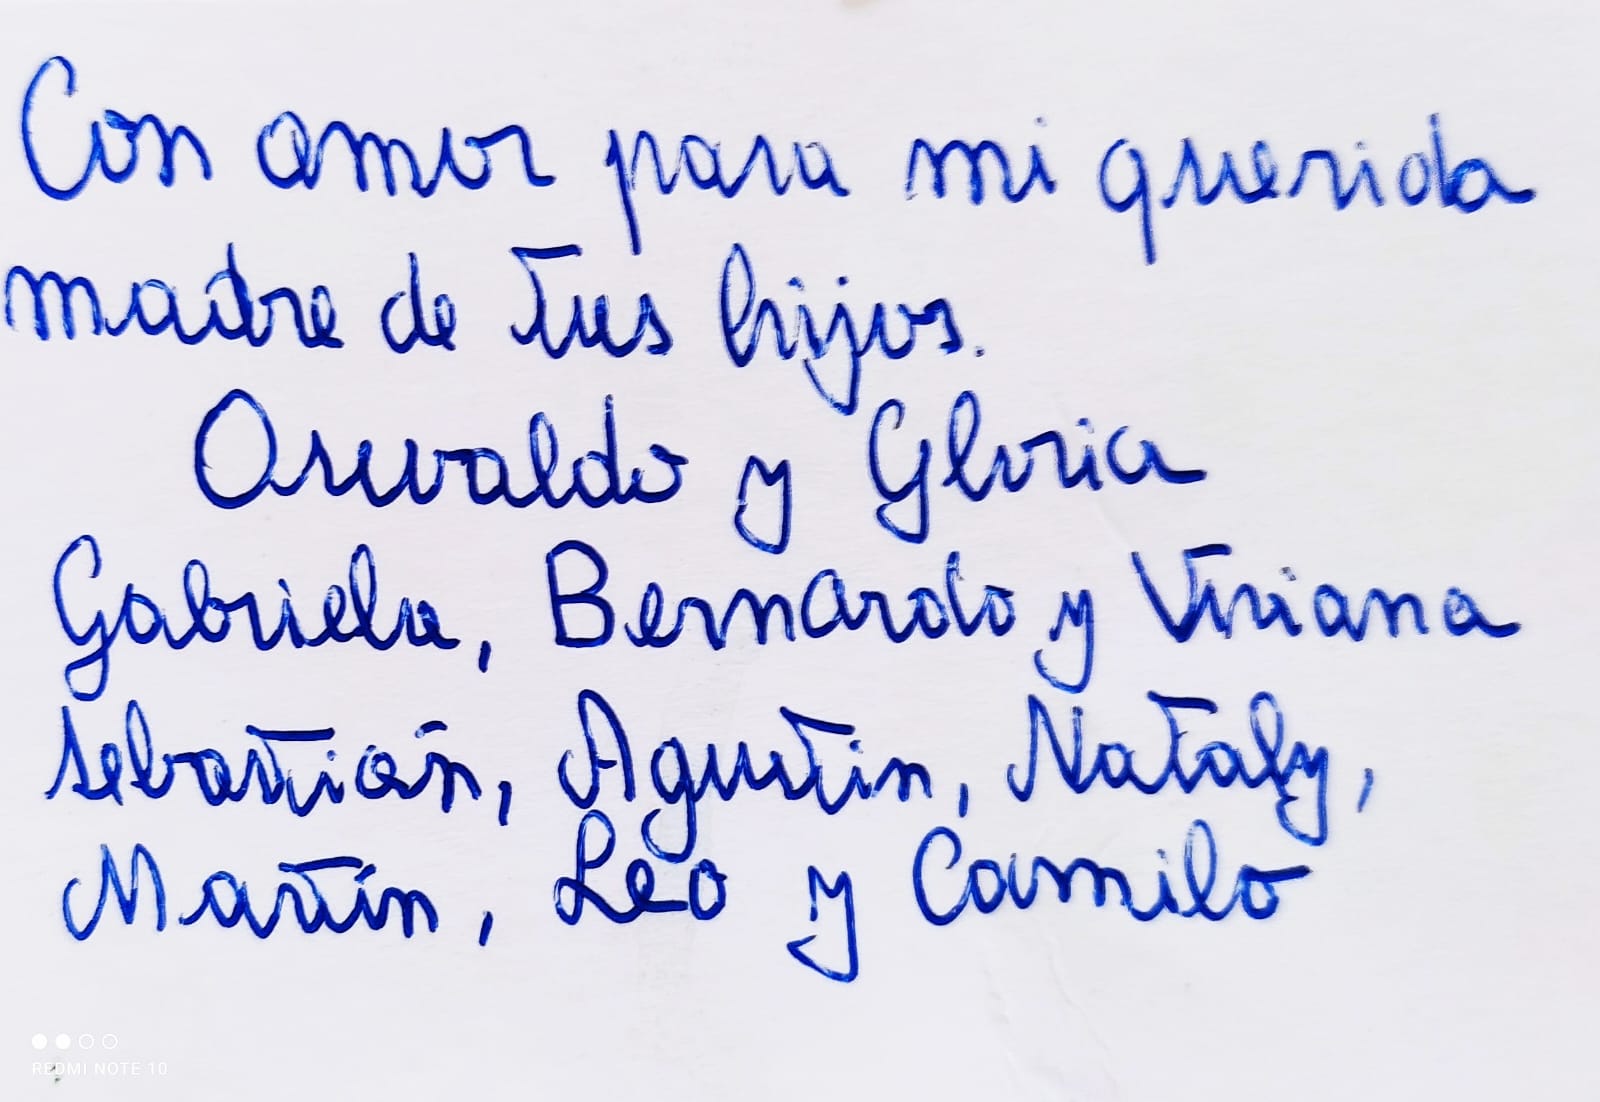 Con amor para mi querida
madre de tus hijos.
Osvaldo y Gloria
Gabriela, Bernardo y Viviana
Sebastián, Agustin, Nataly,
Martín, Leo y Camilo
REDMI NOTE 10